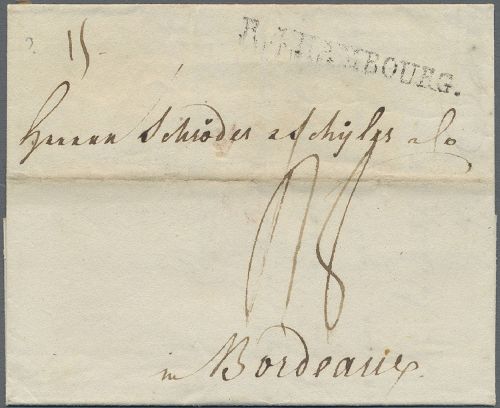 15
R. 4. HAMBOURG.
Herren Schröder & Schÿler & Co
18
in Bordeaux.